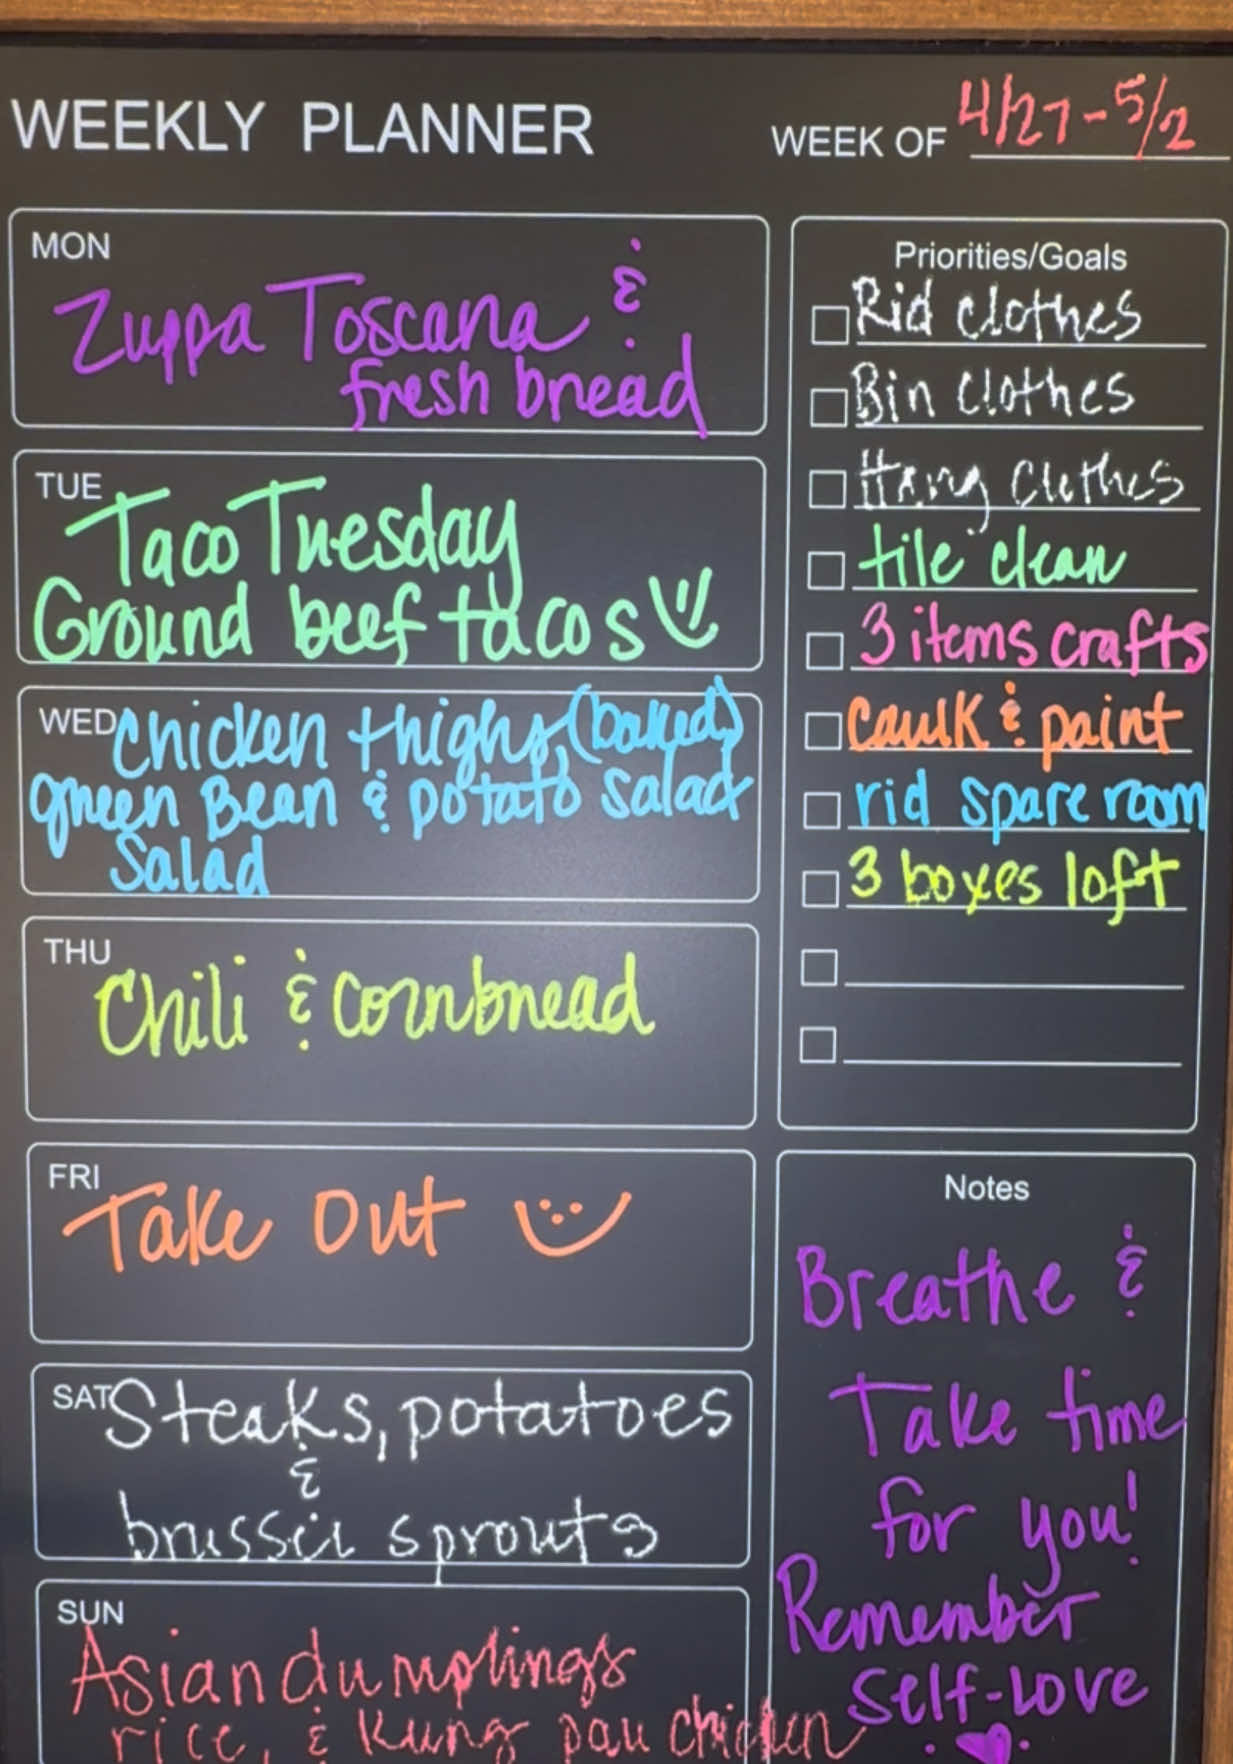 WEEKLY PLANNER
WEEK OF 4/27-5/2
MON
Zuppa Toscana &
fresh bread
TUE
Taco Tuesday
Ground beef tacos
WED
Chicken thighs, (baked)
green Bean & potato salad
Salad
THU
Chili & cornbread
FRI
Take Out
SAT
Steaks, potatoes
&
brussel sprouts
SUN
Asian dumplings
rice, & Kung pau chicken
Priorities/Goals
Rid clothes
Bin clothes
Hang clothes
tile clean
3 items crafts
caulk & paint
rid spare room
3 boxes loft
Notes
Breathe &
Take time
for you!
Remember
Self-Love